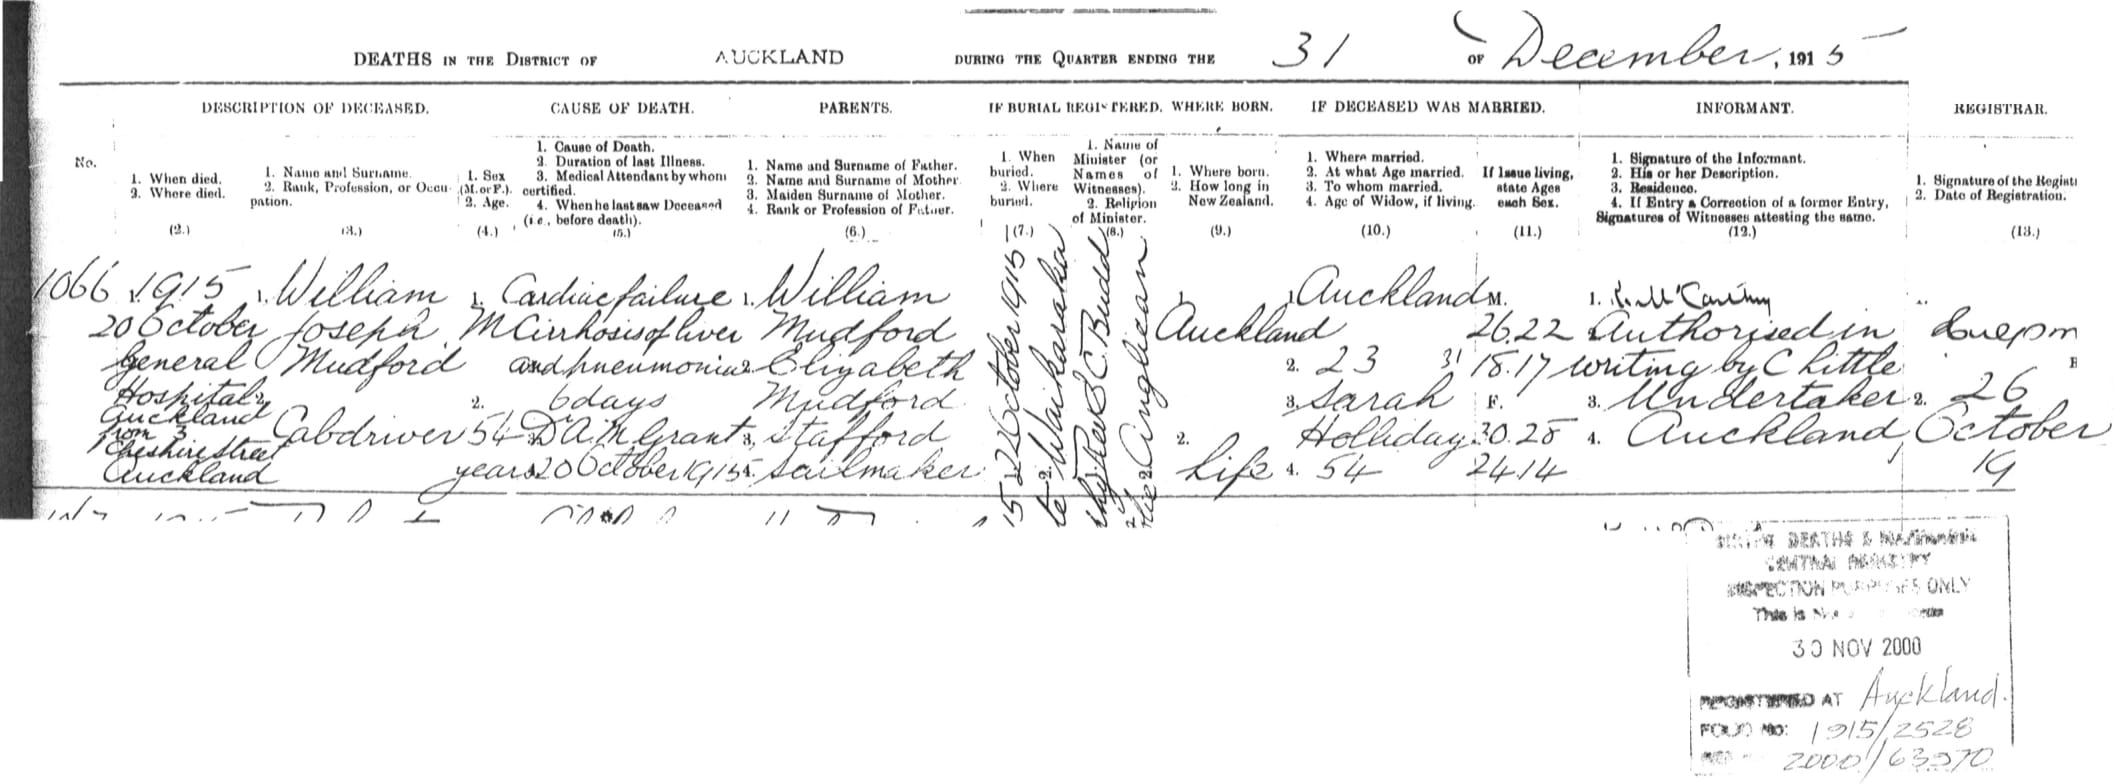 DEATHS IN THE DISTRICT OF AUCKLAND DURING THE QUARTER ENDING THE 31 OF December, 1915
DESCRIPTION OF DECEASED. CAUSE OF DEATH. PARENTS. IF BURIAL REGISTERED. WHERE BORN. IF DECEASED WAS MARRIED. INFORMANT. REGISTRAR.
No.
1. When died.
2. Where died.
(2.)
1. Name and Surname.
2. Rank, Profession, or Occu-
pation.
(3.)
1. Sex
(M. or F.).
2. Age.
(4.)
1. Cause of Death.
2. Duration of last Illness.
3. Medical Attendant by whom
certified.
4. When he last saw Deceased
(i.e., before death).
(5.)
1. Name and Surname of Father.
2. Name and Surname of Mother.
3. Maiden Surname of Mother.
4. Rank or Profession of Father.
(6.)
1. When
buried.
2. Where
buried.
(7.)
1. Name of
Minister (or
Names of
Witnesses).
2. Religion
of Minister.
(8.)
1. Where born.
2. How long in
New Zealand.
(9.)
1. Where married.
2. At what Age married.
3. To whom married.
4. Age of Widow, if living.
(10.)
If Issue living,
state Ages
each Sex.
(11.)
1. Signature of the Informant.
2. His or her Description.
3. Residence.
4. If Entry a Correction of a former Entry,
Signatures of Witnesses attesting the same.
(12.)
1. Signature of the Regist
2. Date of Registration.
(13.)
1066
1. 1915
20 October
General
Hospital 2
Auckland
from 3
Cheshire Street
Auckland
1. William
Joseph
Mudford
Cabdriver
1.
M
54
years
1. Cardiac failure
Cirrhosis of liver
and pneumonia
2. 6 days
D A M Grant
20 October 1915
1. William
Mudford
2. Elizabeth
Mudford
3. Stafford
4. Sailmaker
22 October 1915
2. Waikaraka
Rev S C Budd
2. Anglican
1.
Auckland
2.
Life
1. Auckland
2. 23
3. Sarah
Holliday
4. 54
M.
26.22
31
18.17
F.
30.28
24.14
1. McCarthy
Authorised in
writing by C Little
3. Undertaker
4. Auckland
2. 26
October
19
CENTRAL REGISTRY
INSPECTION PURPOSES ONLY
This is
30 NOV 2000
REGISTERED AT Auckland.
FOLIO No: 1915/2528
2000/63970